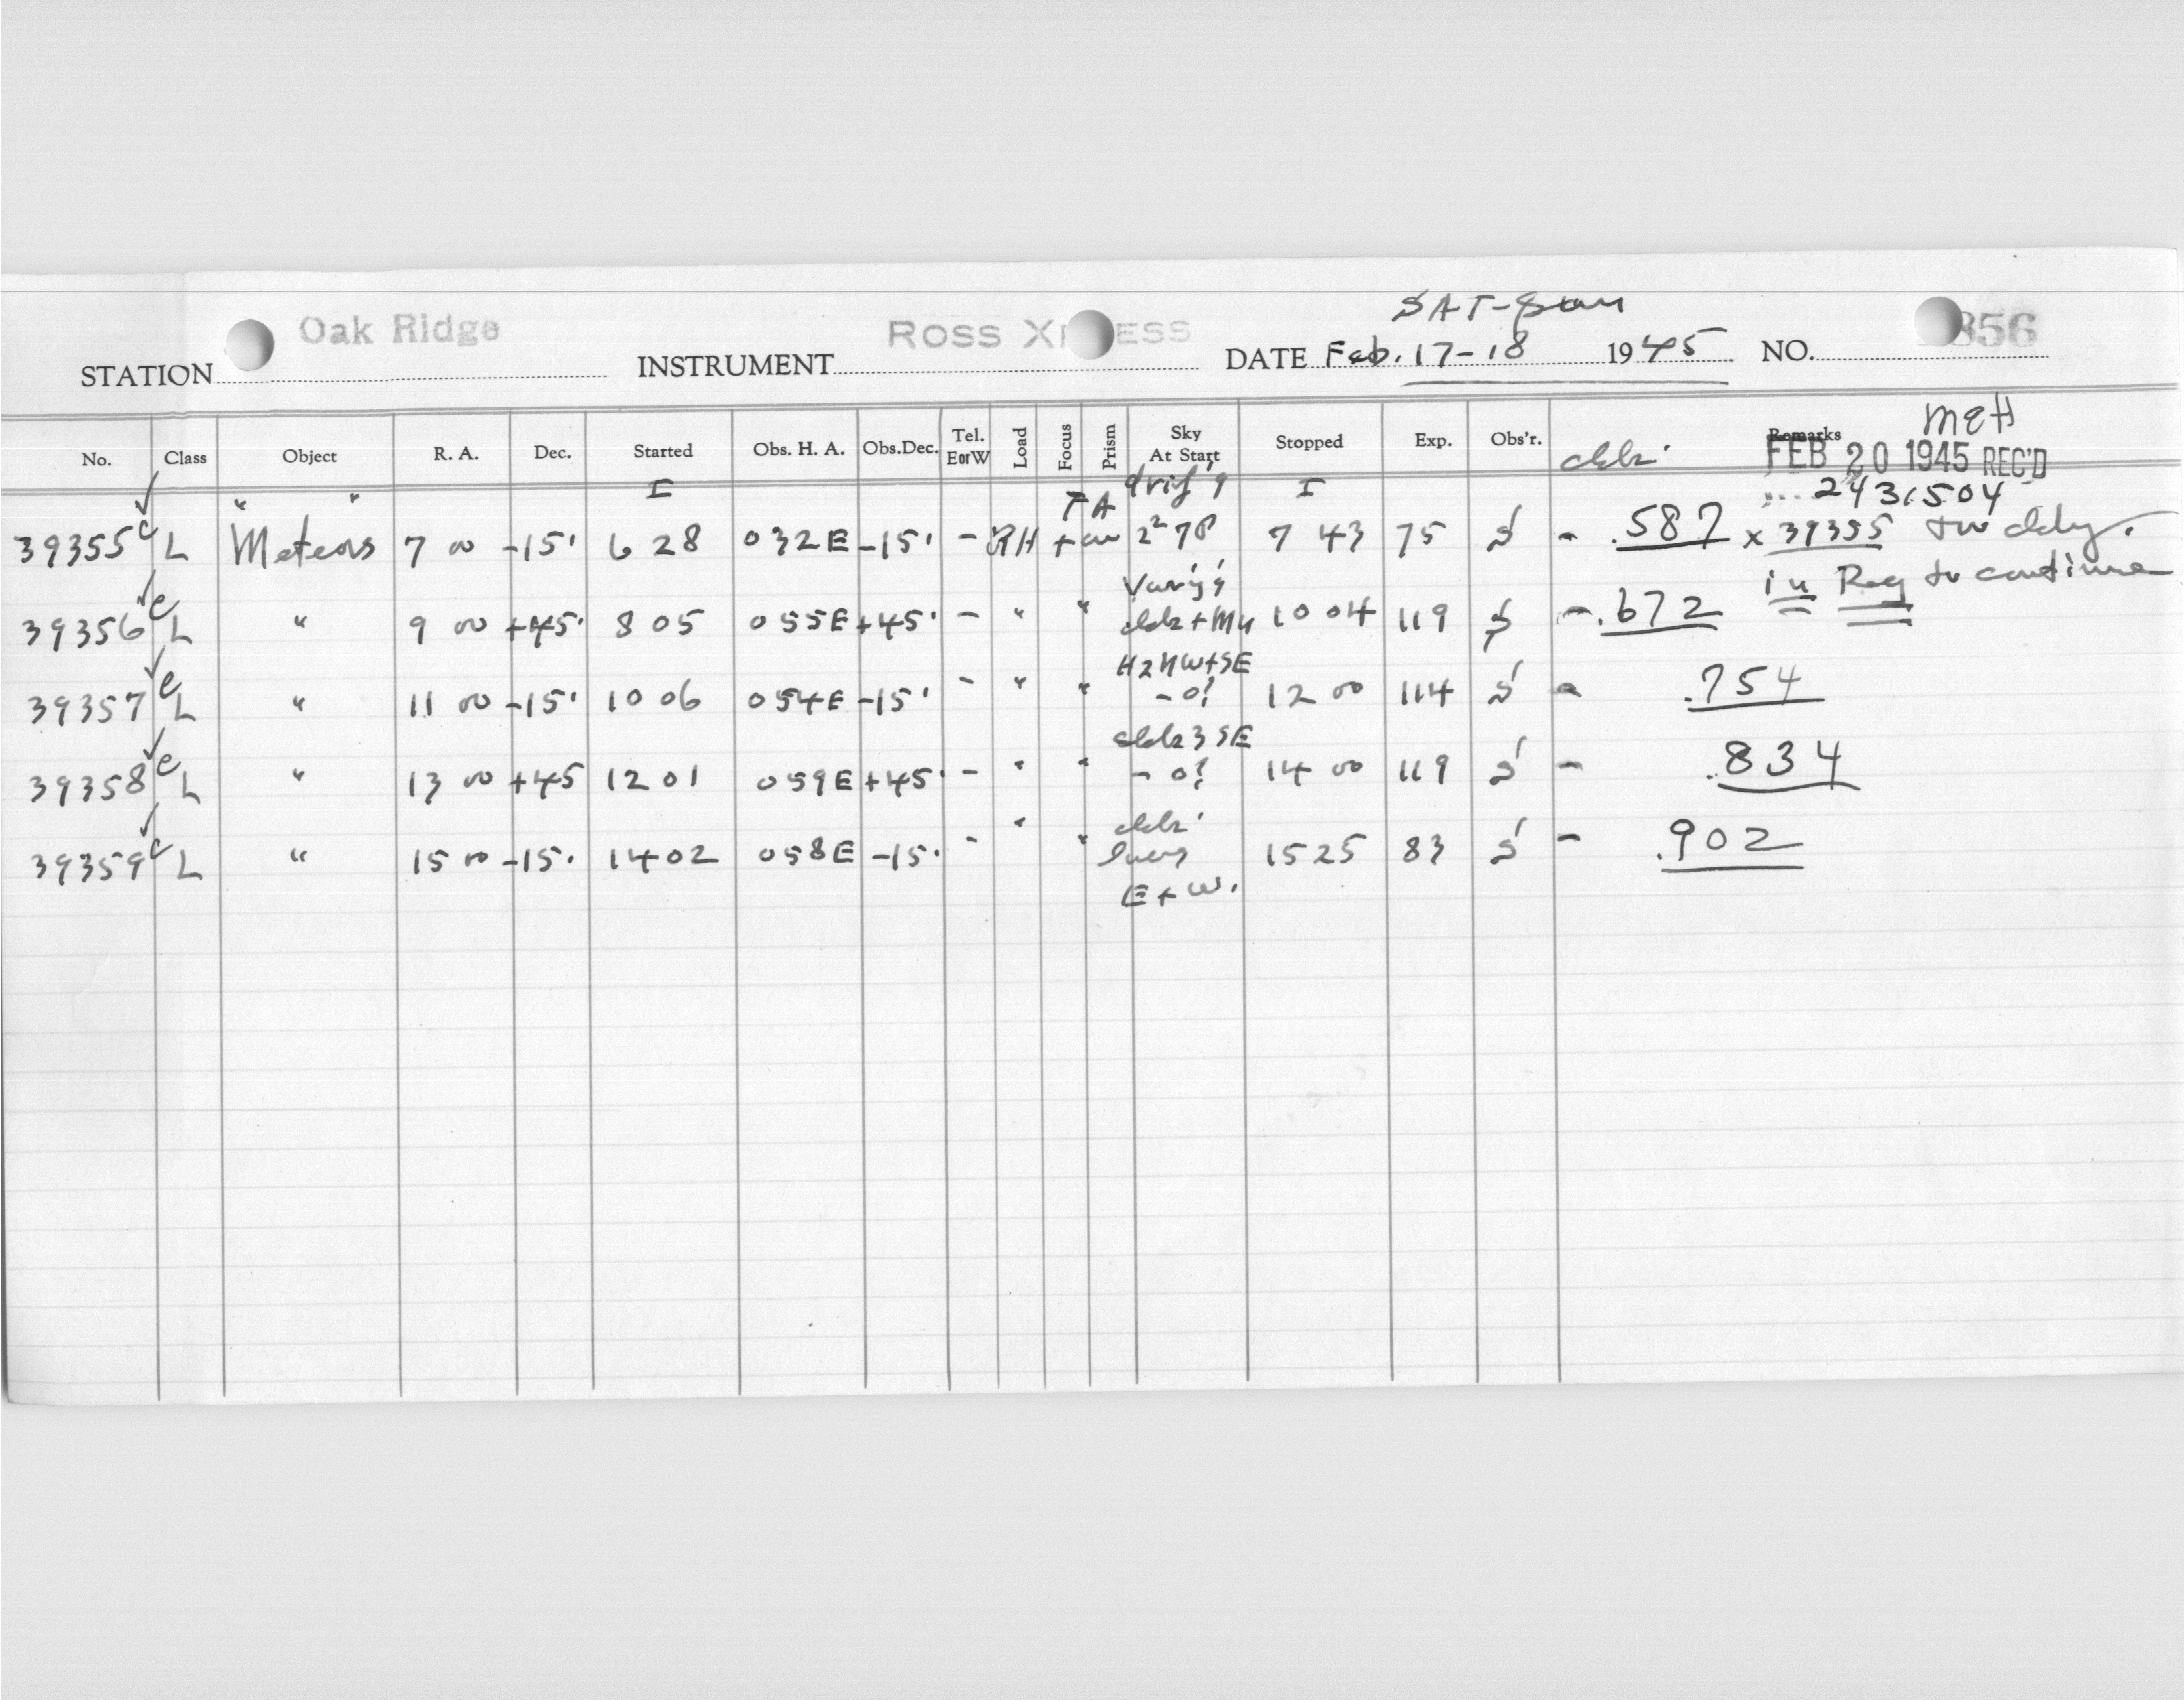 SAT-Sun
STATION Oak Ridge INSTRUMENT ROSS X ESS DATE Feb. 17-18 1945 NO. 856
MEH
No. Class Object R. A. Dec. Started Obs. H. A. Obs.Dec. Tel. E or W Load Focus Prism Sky At Start Stopped Exp. Obs'r. Remarks
FEB 20 1945 REC'D
" " I T A drif'g I 2431504
39355 c L Meteors 7 00 -15° 6 28 0 32 E -15° - RH 7 43 75 S - .587 x 39355
in Reg to continue
39356 e L " 9 00 +45° 8 05 0 55 E +45° - " " Vary'g clds + 10 04 119 S - .672
39357 e L " 11 00 -15° 10 06 0 54 E -15° - " " Hz NW+SE - 0? 12 00 114 S - .754
39358 e L " 13 00 +45 12 01 0 59 E +45° - " " SE - 0? 14 00 119 S - .834
39359 c L " 15 00 -15° 14 02 0 58 E -15° - " " E + W. 15 25 83 S - .902